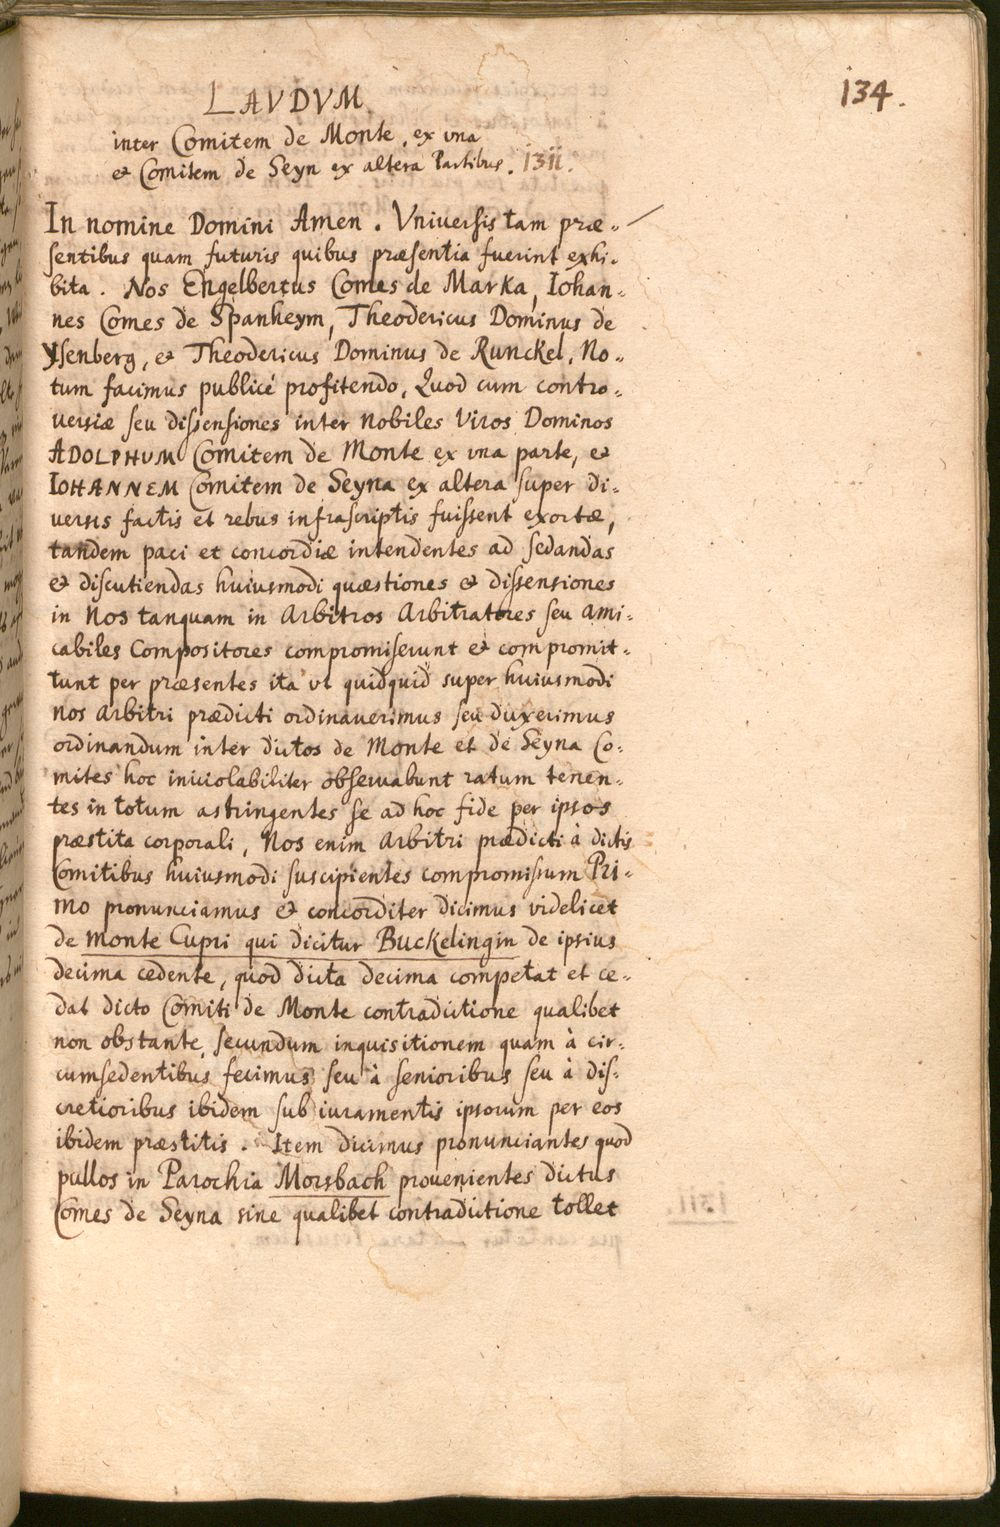 134.
LAVDVM
inter Comitem de Monte, ex vna
et Comitem de Seyn ex altera Partibus. 1311.
In nomine Domini Amen. Vniversis tam præ-
sentibus quam futuris quibus præsentia fuerint exhi-
bita. Nos Engelbertus Comes de Marka, Iohan-
nes Comes de Spanheym, Theodericus Dominus de
Ysenberg, et Theodericus Dominus de Runckel, No-
tum facimus publicé profitendo, Quod cum contro-
versiæ seu dissensiones inter Nobiles Viros Dominos
ADOLPHUM Comitem de Monte ex vna parte, et
IOHANNEM Comitem de Seyna ex altera super di-
versis factis et rebus infrascriptis fuissent exortæ,
tandem paci et concordiæ intendentes ad sedandas
et discutiendas huiusmodi quæstiones et dissensiones
in Nos tanquam in Arbitros Arbitratores seu Ami-
cabiles Compositores compromiserunt et compromit-
tunt per præsentes ita vt quidquid super huiusmodi
nos Arbitri prædicti ordinaverimus seu duxerimus
ordinandum inter dictos de Monte et de Seyna Co-
mites hoc inviolabiliter observabunt ratum tenen-
tes in totum astringentes se ad hoc fide per ipsos
præstita corporali, Nos enim Arbitri prædicti à dictis
Comitibus huiusmodi suscipientes compromissum Pri-
mo pronunciamus et concorditer dicimus videlicet
de Monte Cupri qui dicitur Buckelingin de ipsius
decima cedente, quod dicta decima competat et ce-
dat dicto Comiti de Monte contradictione qualibet
non obstante, secundum inquisitionem quam à cir-
cumsedentibus fecimus seu à senioribus seu à dis-
cretioribus ibidem sub iuramentis ipsorum per eos
ibidem præstitis. Item dicimus pronunciantes quod
pullos in Parochia Morsbach provenientes dictus
Comes de Seyna sine qualibet contradictione tollet